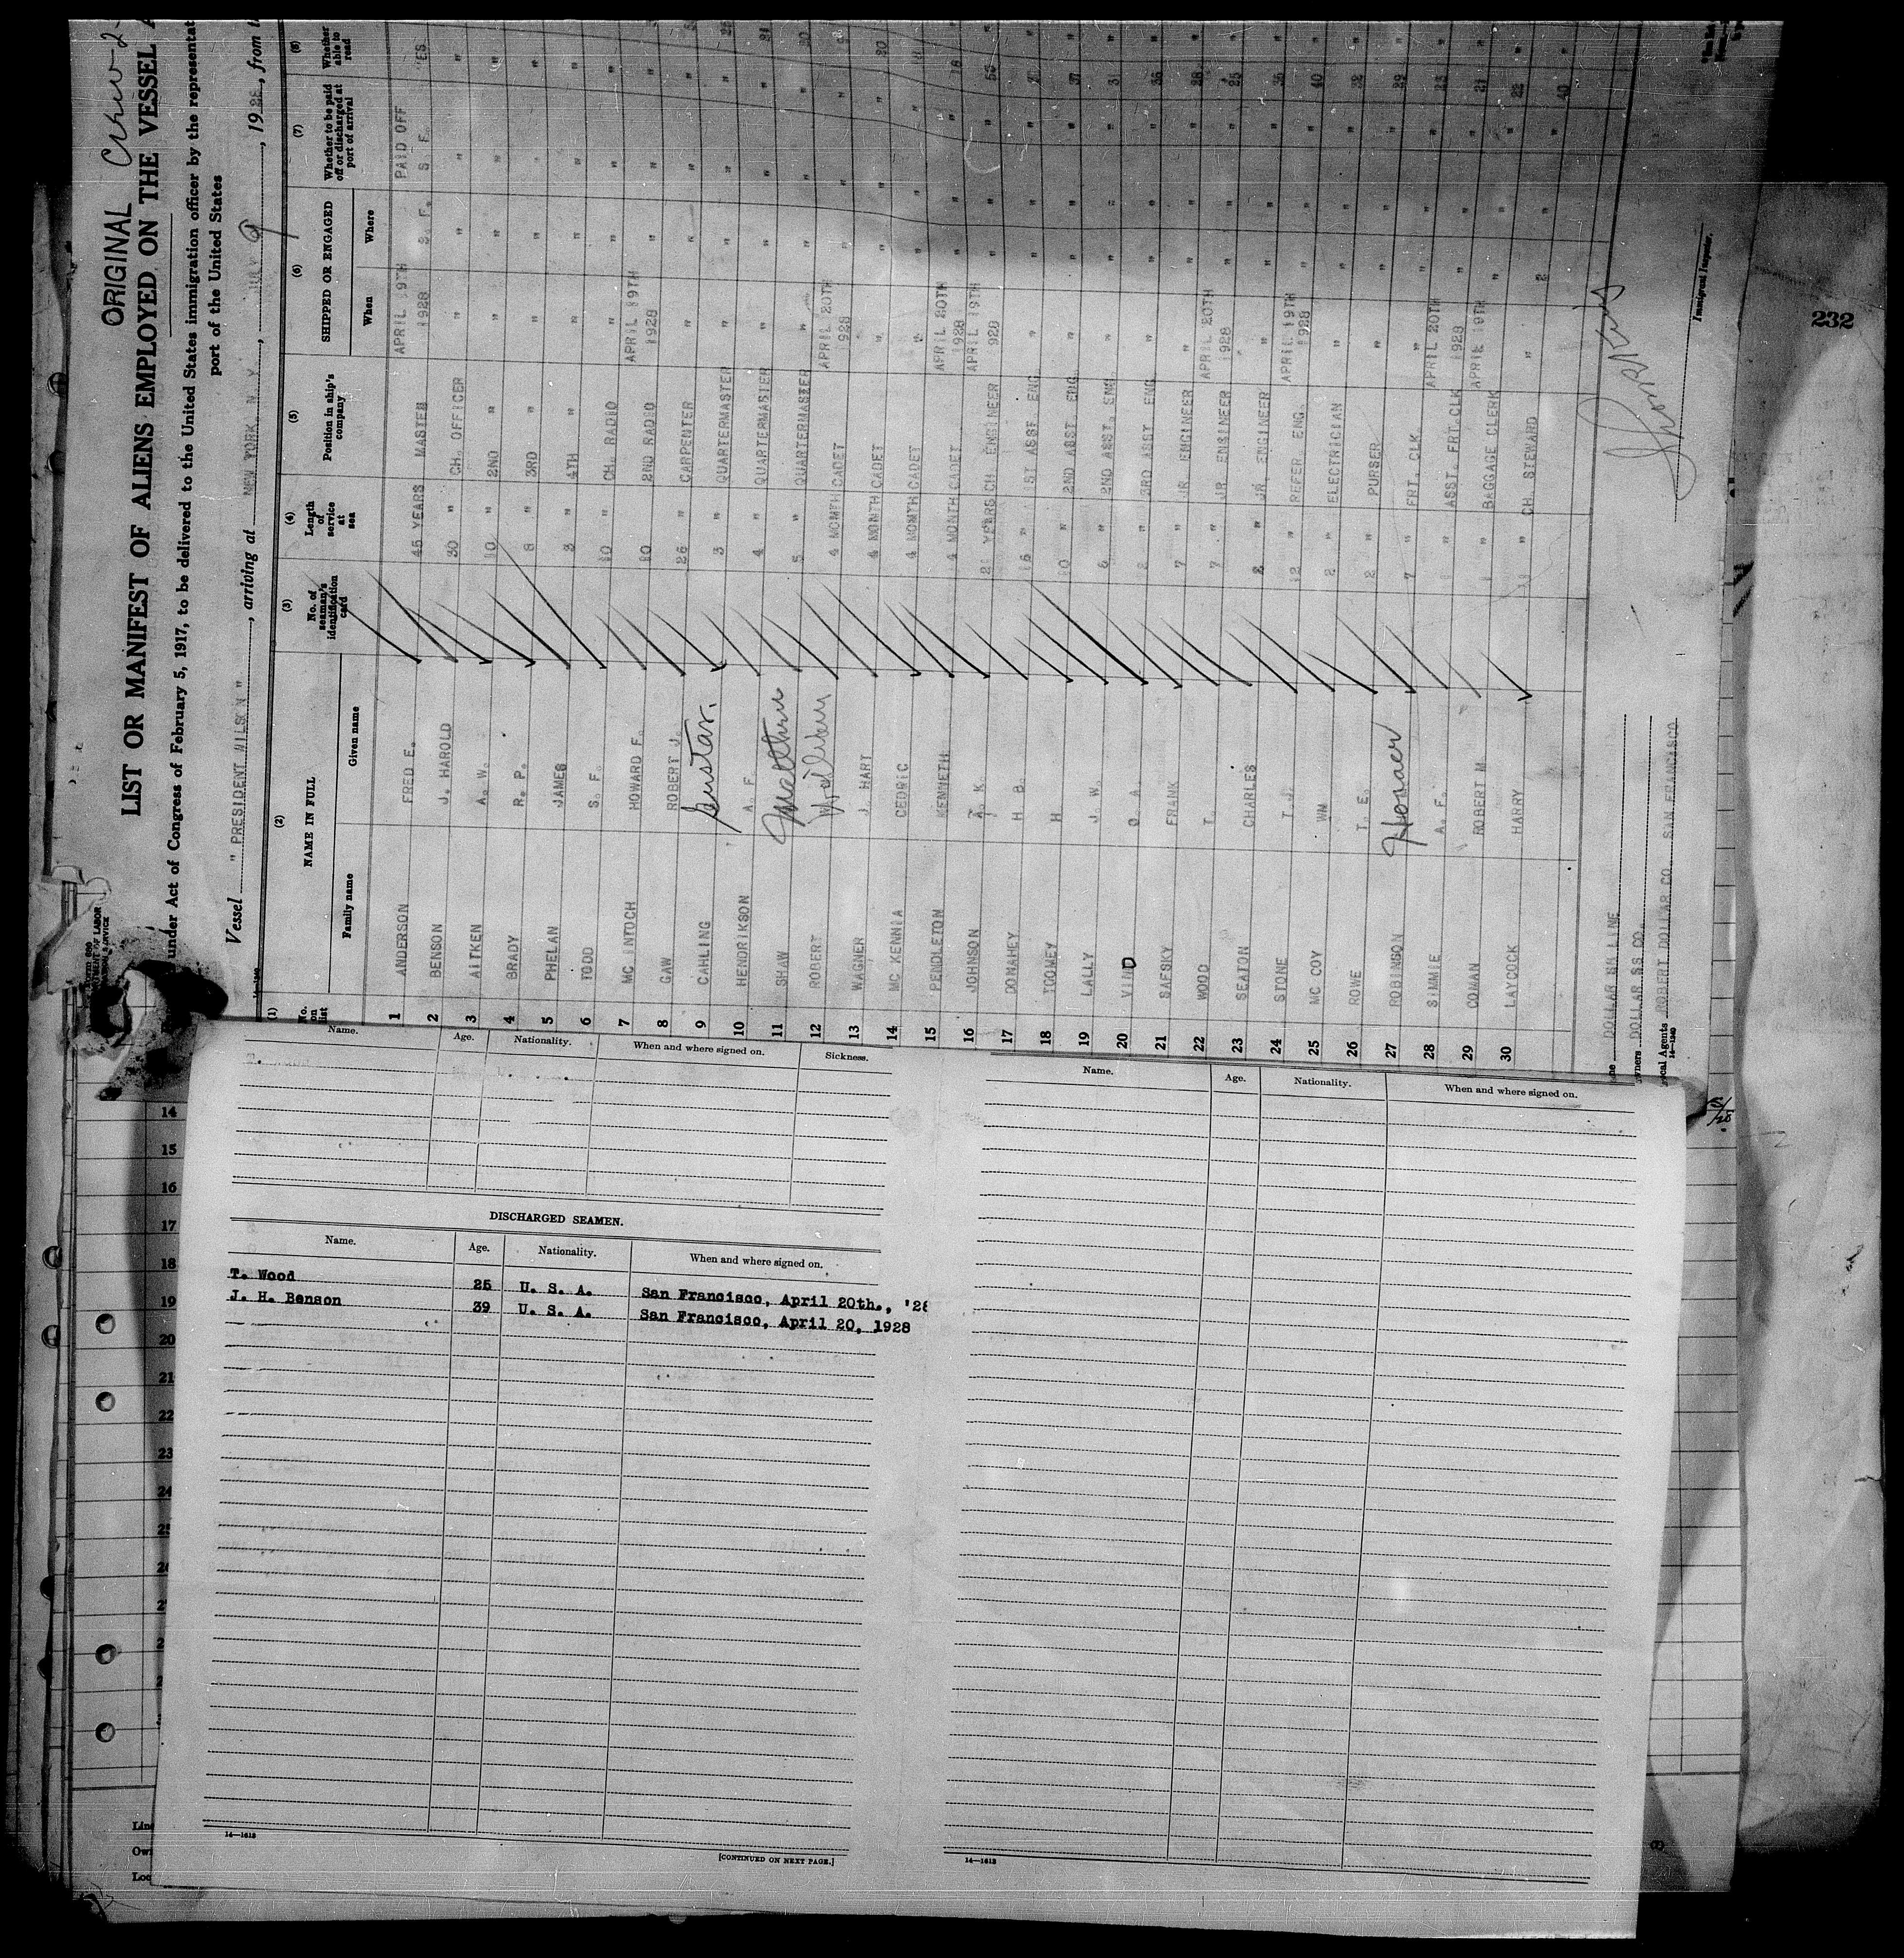 ORIGINAL
LIST OR MANIFEST OF ALIENS EMPLOYED ON THE VESSEL
under Act of Congress of February 5, 1917, to be delivered to the United States immigration officer by the representat
port of the United States
Vessel " PRESIDENT WILSON ", arriving at NEW YORK, N. Y., 1928, from
(1) (2) (3) (4) (5) (6) (7) (8)
No. on list
NAME IN FULL
Family name Given name
No. of seaman's identification card
Length of service at sea
Position in ship's company
SHIPPED OR ENGAGED
When Where
Whether to be paid off or discharged at port of arrival
Whether able to read
1 ANDERSON FRED E. 45 YEARS MASTER APRIL 19TH 1928 S. F. PAID OFF S F. YES
2 BENSON J. HAROLD 30 " CH. OFFICER " " " "
3 AITKEN A. W. 10 " 2ND " " " " "
4 BRADY R. P. 8 " 3RD " " " " "
5 PHELAN JAMES 3 " 4TH " " " " "
6 TODD S. F. 10 " CH. RADIO " " " "
7 MC INTOCH HOWARD F. 10 2ND RADIO APRIL 19TH 1928 " "
8 GAW ROBERT J. 26 " CARPENTER " " "
9 CAHLING Gustav. 3 " QUARTERMASTER " " "
10 HENDRIKSON A. F. 4 " QUARTERMASTER " " "
11 SHAW Matthew 5 " QUARTERMASTER " " "
12 ROBERT William 4 MOMTH CADET APRIL 20TH 928 " "
13 WAGNER J. HART 4 MONTH CADET " " "
14 MC KENNIA CEDRIC 4 MOMTH CADET " " "
15 PENDLETON KENNETH 4 MONTH CADET APRIL 20TH 1928 " "
16 JOHNSON A. K. 21 YEARS CH ENGINEER APRIL 19TH 928 " "
17 DONAHEY H B. 16 " 1ST ASST ENG. " " "
18 TOOMEY H 10 " 2ND ASST. ENG. " " "
19 LALLY J. W. 6 " 2ND ASST. ENG. " " "
20 VIIND O. A. 2 " 3RD ASST ENG " " "
21 SAFSKY FRANK 7 " JR ENGINEER " " "
22 WOOD T. 7 " JR ENGINEER APRIL 20TH 1928 " "
23 SEATON CHARLES 2 " JR ENGINEER " " "
24 STONE T. J. 12 " REFER ENG. APRIL 19TH 928 " "
25 MC COY WM 2 " ELECTRICIAN " " "
26 ROWE T. E. 2 " PURSER " " "
27 ROBINSON Homer 7 " FRT. CLK " " "
28 SIMMIE A. F. 1 " ASST. FRT. CLK APRIL 20TH 1928 " "
29 COMAN ROBERT M 1 " BAGGAGE CLERK APRIL 19TH " "
30 LAYCOCK HARRY 11 " CH STEWARD " "
DOLLAR SS LINE
wners DOLLAR SS CO.
ocal Agents ROBERT DOLLAR CO. SAN FRANCISCO
14—1240
Immigrant Inspector.
232
Name. Age. Nationality. When and where signed on. Sickness.
DISCHARGED SEAMEN.
Name. Age. Nationality. When and where signed on.
T. Wood 25 U. S. A. San Francisco, April 20th., '28
J. H. Benson 39 U. S. A. San Francisco, April 20, 1928
14—1613
[CONTINUED ON NEXT PAGE.]
Name. Age. Nationality. When and where signed on.
14—1613
14
15
16
17
18
19
20
21
22
23
24
Line
Own
Loc